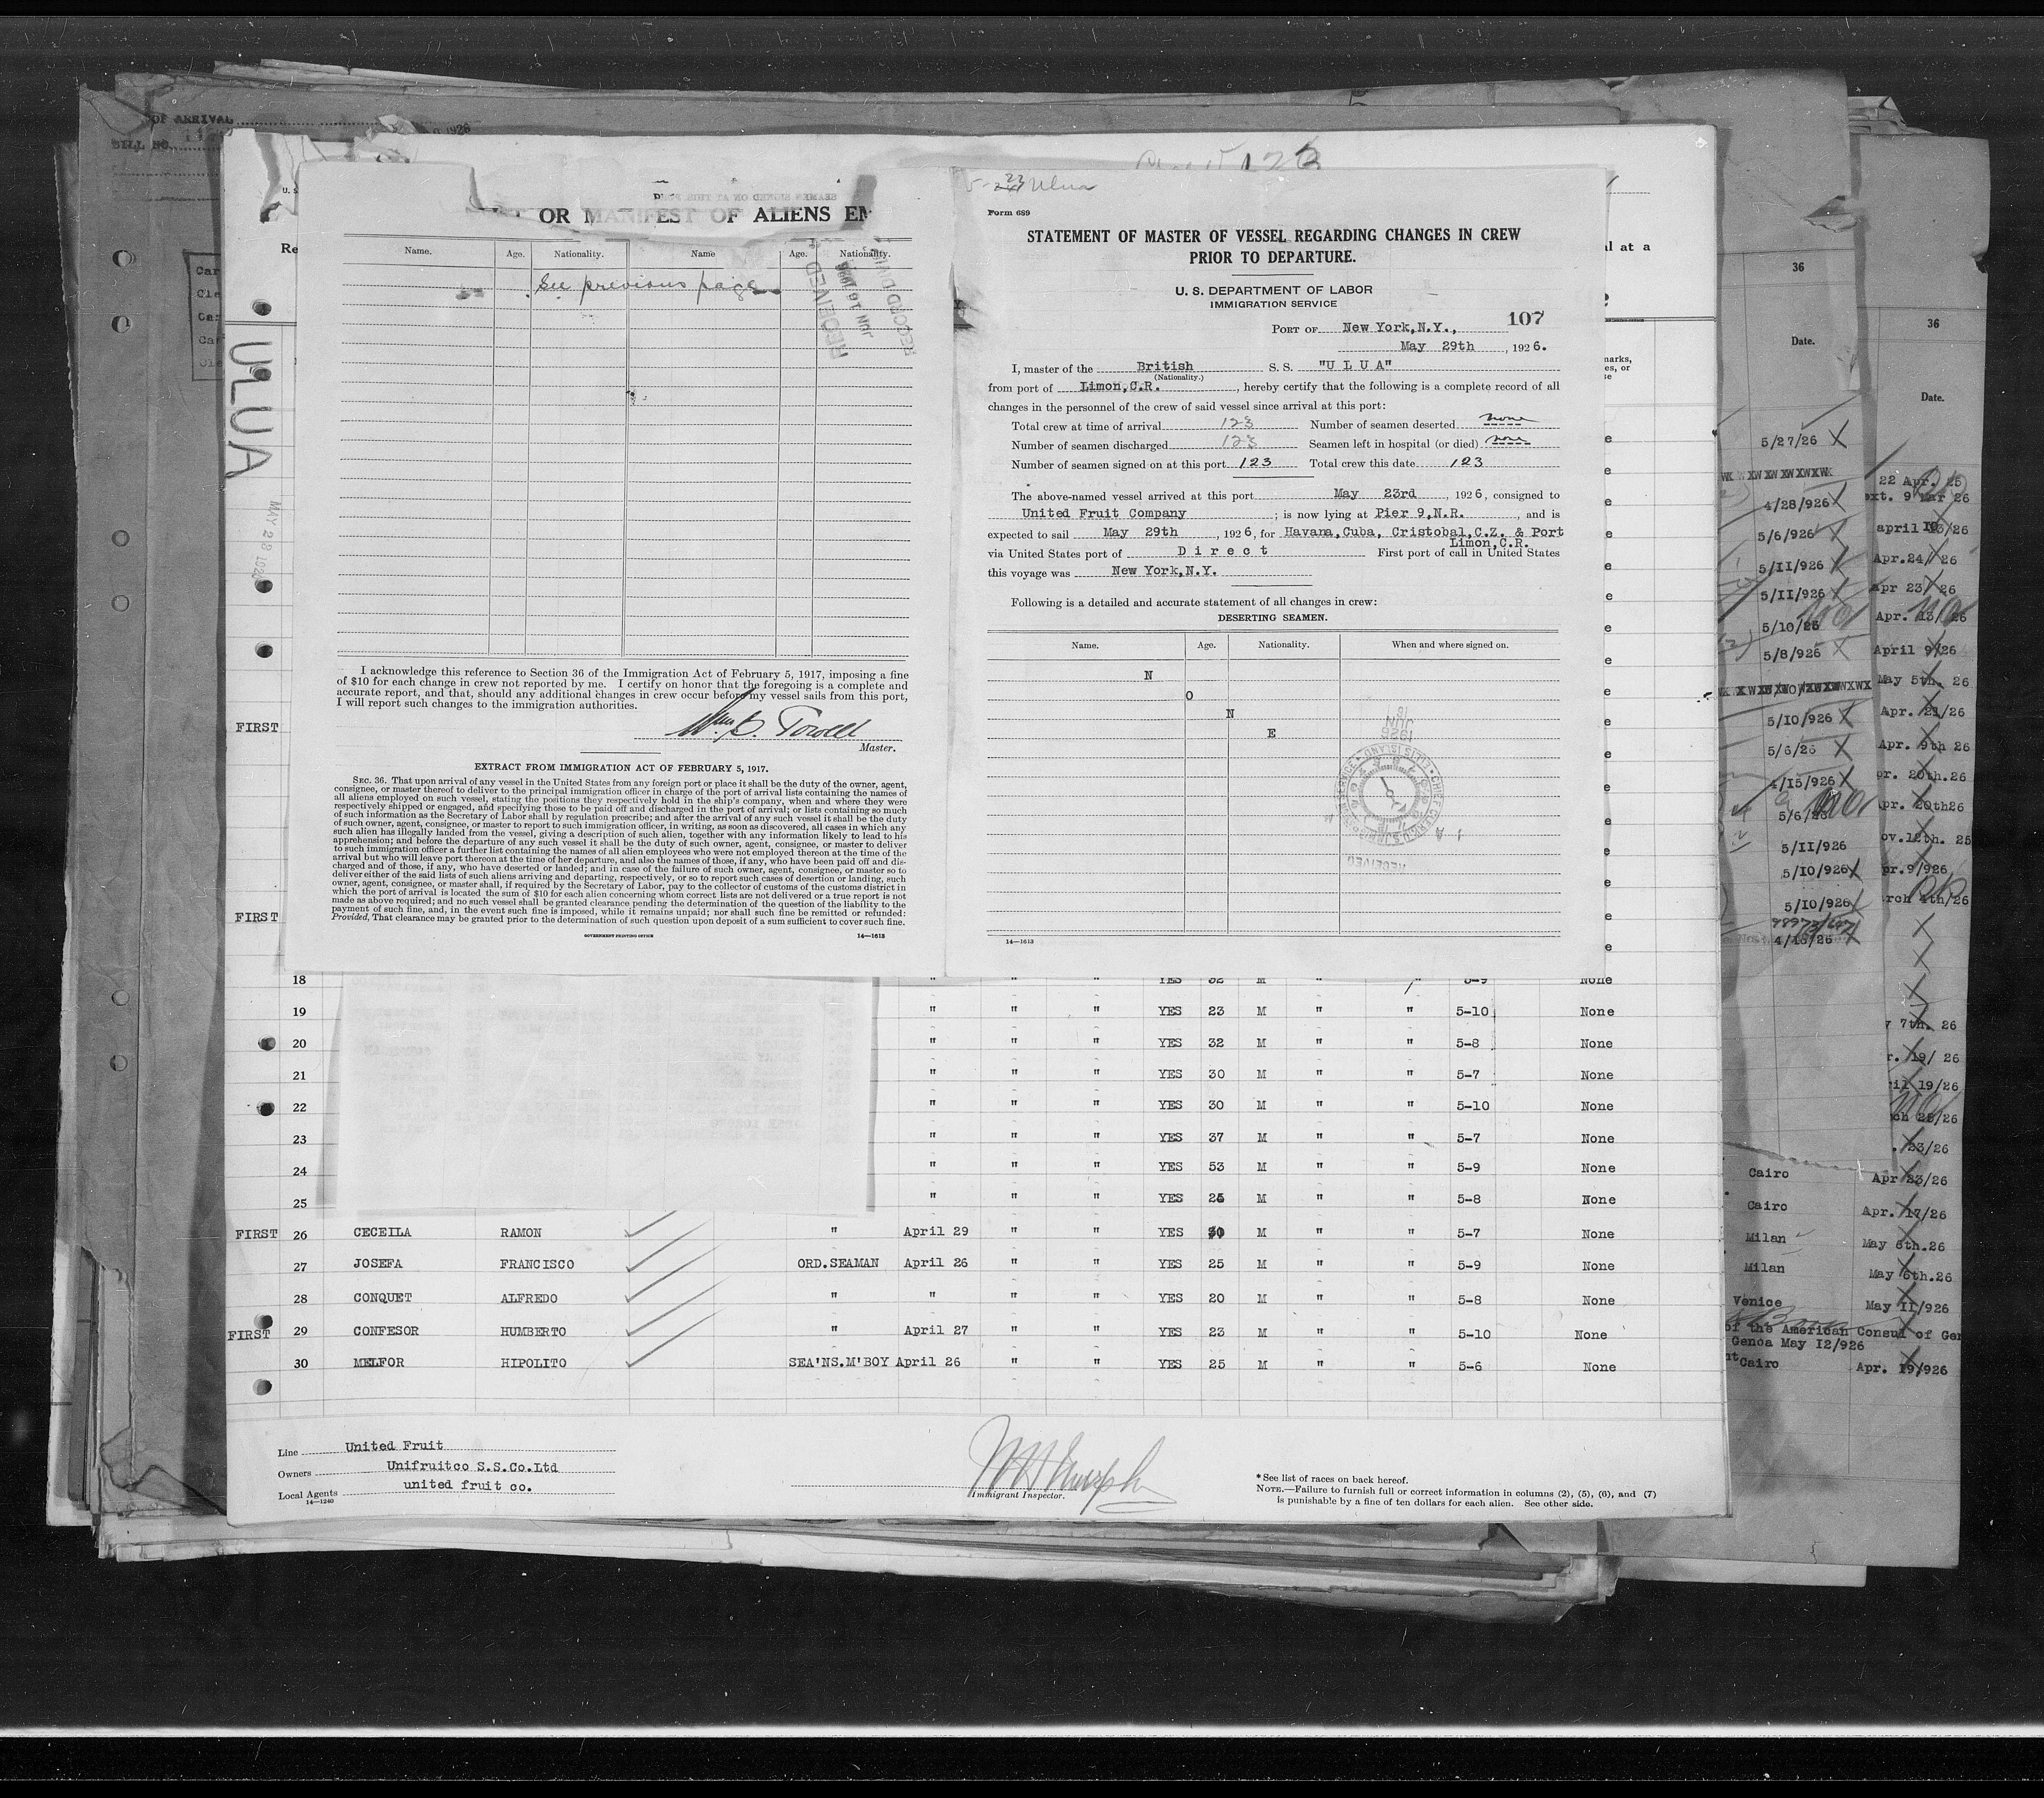 OF ARRIVAL
BILL NO.
OR MANIFEST OF ALIENS EM
Name. Age. Nationality. Name Age. Nationality.
See previous page
RECEIVED
JUN 16 1926
RECORD DIVIS
I acknowledge this reference to Section 36 of the Immigration Act of February 5, 1917, imposing a fine
of $10 for each change in crew not reported by me. I certify on honor that the foregoing is a complete and
accurate report, and that, should any additional changes in crew occur before my vessel sails from this port,
I will report such changes to the immigration authorities.
Master.
EXTRACT FROM IMMIGRATION ACT OF FEBRUARY 5, 1917.
SEC. 36. That upon arrival of any vessel in the United States from any foreign port or place it shall be the duty of the owner, agent,
consignee, or master thereof to deliver to the principal immigration officer in charge of the port of arrival lists containing the names of
all aliens employed on such vessel, stating the positions they respectively hold in the ship's company, when and where they were
respectively shipped or engaged, and specifying those to be paid off and discharged in the port of arrival; or lists containing so much
of such information as the Secretary of Labor shall by regulation prescribe; and after the arrival of any such vessel it shall be the duty
of such owner, agent, consignee, or master to report to such immigration officer, in writing, as soon as discovered, all cases in which any
such alien has illegally landed from the vessel, giving a description of such alien, together with any information likely to lead to his
apprehension; and before the departure of any such vessel it shall be the duty of such owner, agent, consignee, or master to deliver
to such immigration officer a further list containing the names of all alien employees who were not employed thereon at the time of the
arrival but who will leave port thereon at the time of her departure, and also the names of those, if any, who have been paid off and dis-
charged and of those, if any, who have deserted or landed; and in case of the failure of such owner, agent, consignee, or master so to
deliver either of the said lists of such aliens arriving and departing, respectively, or so to report such cases of desertion or landing, such
owner, agent, consignee, or master shall, if required by the Secretary of Labor, pay to the collector of customs of the customs district in
which the port of arrival is located the sum of $10 for each alien concerning whom correct lists are not delivered or a true report is not
made as above required; and no such vessel shall be granted clearance pending the determination of the question of the liability to the
payment of such fine, and, in the event such fine is imposed, while it remains unpaid; nor shall such fine be remitted or refunded:
Provided, That clearance may be granted prior to the determination of such question upon deposit of a sum sufficient to cover such fine.
GOVERNMENT PRINTING OFFICE 14—1613
Ulua
Form 689
STATEMENT OF MASTER OF VESSEL REGARDING CHANGES IN CREW
PRIOR TO DEPARTURE.
U. S. DEPARTMENT OF LABOR
IMMIGRATION SERVICE
107
PORT OF New York,N.Y.,
May 29th, 1926.
I, master of the British S. S. "U L U A"
(Nationality.)
from port of Limon,C.R., hereby certify that the following is a complete record of all
changes in the personnel of the crew of said vessel since arrival at this port:
Total crew at time of arrival 123 Number of seamen deserted none
Number of seamen discharged 123 Seamen left in hospital (or died) none
Number of seamen signed on at this port 123 Total crew this date 123
The above-named vessel arrived at this port May 23rd, 1926, consigned to
United Fruit Company; is now lying at Pier 9,N.R., and is
expected to sail May 29th, 1926, for Havana,Cuba, Cristobal,C.Z. & Port
Limon,C.R.
via United States port of D i r e c t First port of call in United States
this voyage was New York,N.Y.
Following is a detailed and accurate statement of all changes in crew:
DESERTING SEAMEN.
Name. Age. Nationality. When and where signed on.
N
O
N
E
14—1613
ULUA
MAY 28 192
FIRST
FIRST
18 " " " YES 32 M " " 5-9 None
19 " " " YES 23 M " " 5-10 None
20 " " " YES 32 M " " 5-8 None
21 " " " YES 30 M " " 5-7 None
22 " " " YES 30 M " " 5-10 None
23 " " " YES 37 M " " 5-7 None
24 " " " YES 53 M " " 5-9 None
25 " " " YES 26 M " " 5-8 None
FIRST 26 CECEILA RAMON " April 29 " " YES 30 M " " 5-7 None
27 JOSEFA FRANCISCO ORD.SEAMAN April 26 " " YES 25 M " " 5-9 None
28 CONQUET ALFREDO " " " " YES 20 M " " 5-8 None
FIRST 29 CONFESOR HUMBERTO " April 27 " " YES 23 M " " 5-10 None
30 MELFOR HIPOLITO SEA'NS.M'BOY April 26 " " YES 25 M " " 5-6 None
Line United Fruit
Owners Unifruitco S.S.Co.Ltd
Local Agents united fruit co.
14—1240
Immigrant Inspector.
*See list of races on back hereof.
NOTE.—Failure to furnish full or correct information in columns (2), (5), (6), and (7)
is punishable by a fine of ten dollars for each alien. See other side.
36
Date.
5/27/26
4/28/926
5/6/926
5/11/926
5/11/926
5/10/26
5/8/926
5/10/926
5/6/26
4/15/926
5/6/26
5/11/926
5/10/926
5/10/926
4/16/26
36
Date.
22 Apr. 25
ext. 9 Mar 26
april 13/26
Apr.24/26
Apr 23/26
Apr. 13/26
April 9/26
May 5th. 26
Apr. 21/26
Apr. 9th 26
pr. 20th.26
pr. 20th26
ov.12th. 25
pr.9/926
rch 4th/26
7th. 26
r. 19/ 26
ril 19/26
ch 25/26
. 23/26
Cairo Apr 23/26
Cairo Apr. 17/26
Milan May 6th.26
Milan May 6th.26
Venice May 11/926
of the American Consul of Gen
Genoa May 12/926
Cairo Apr. 19/926